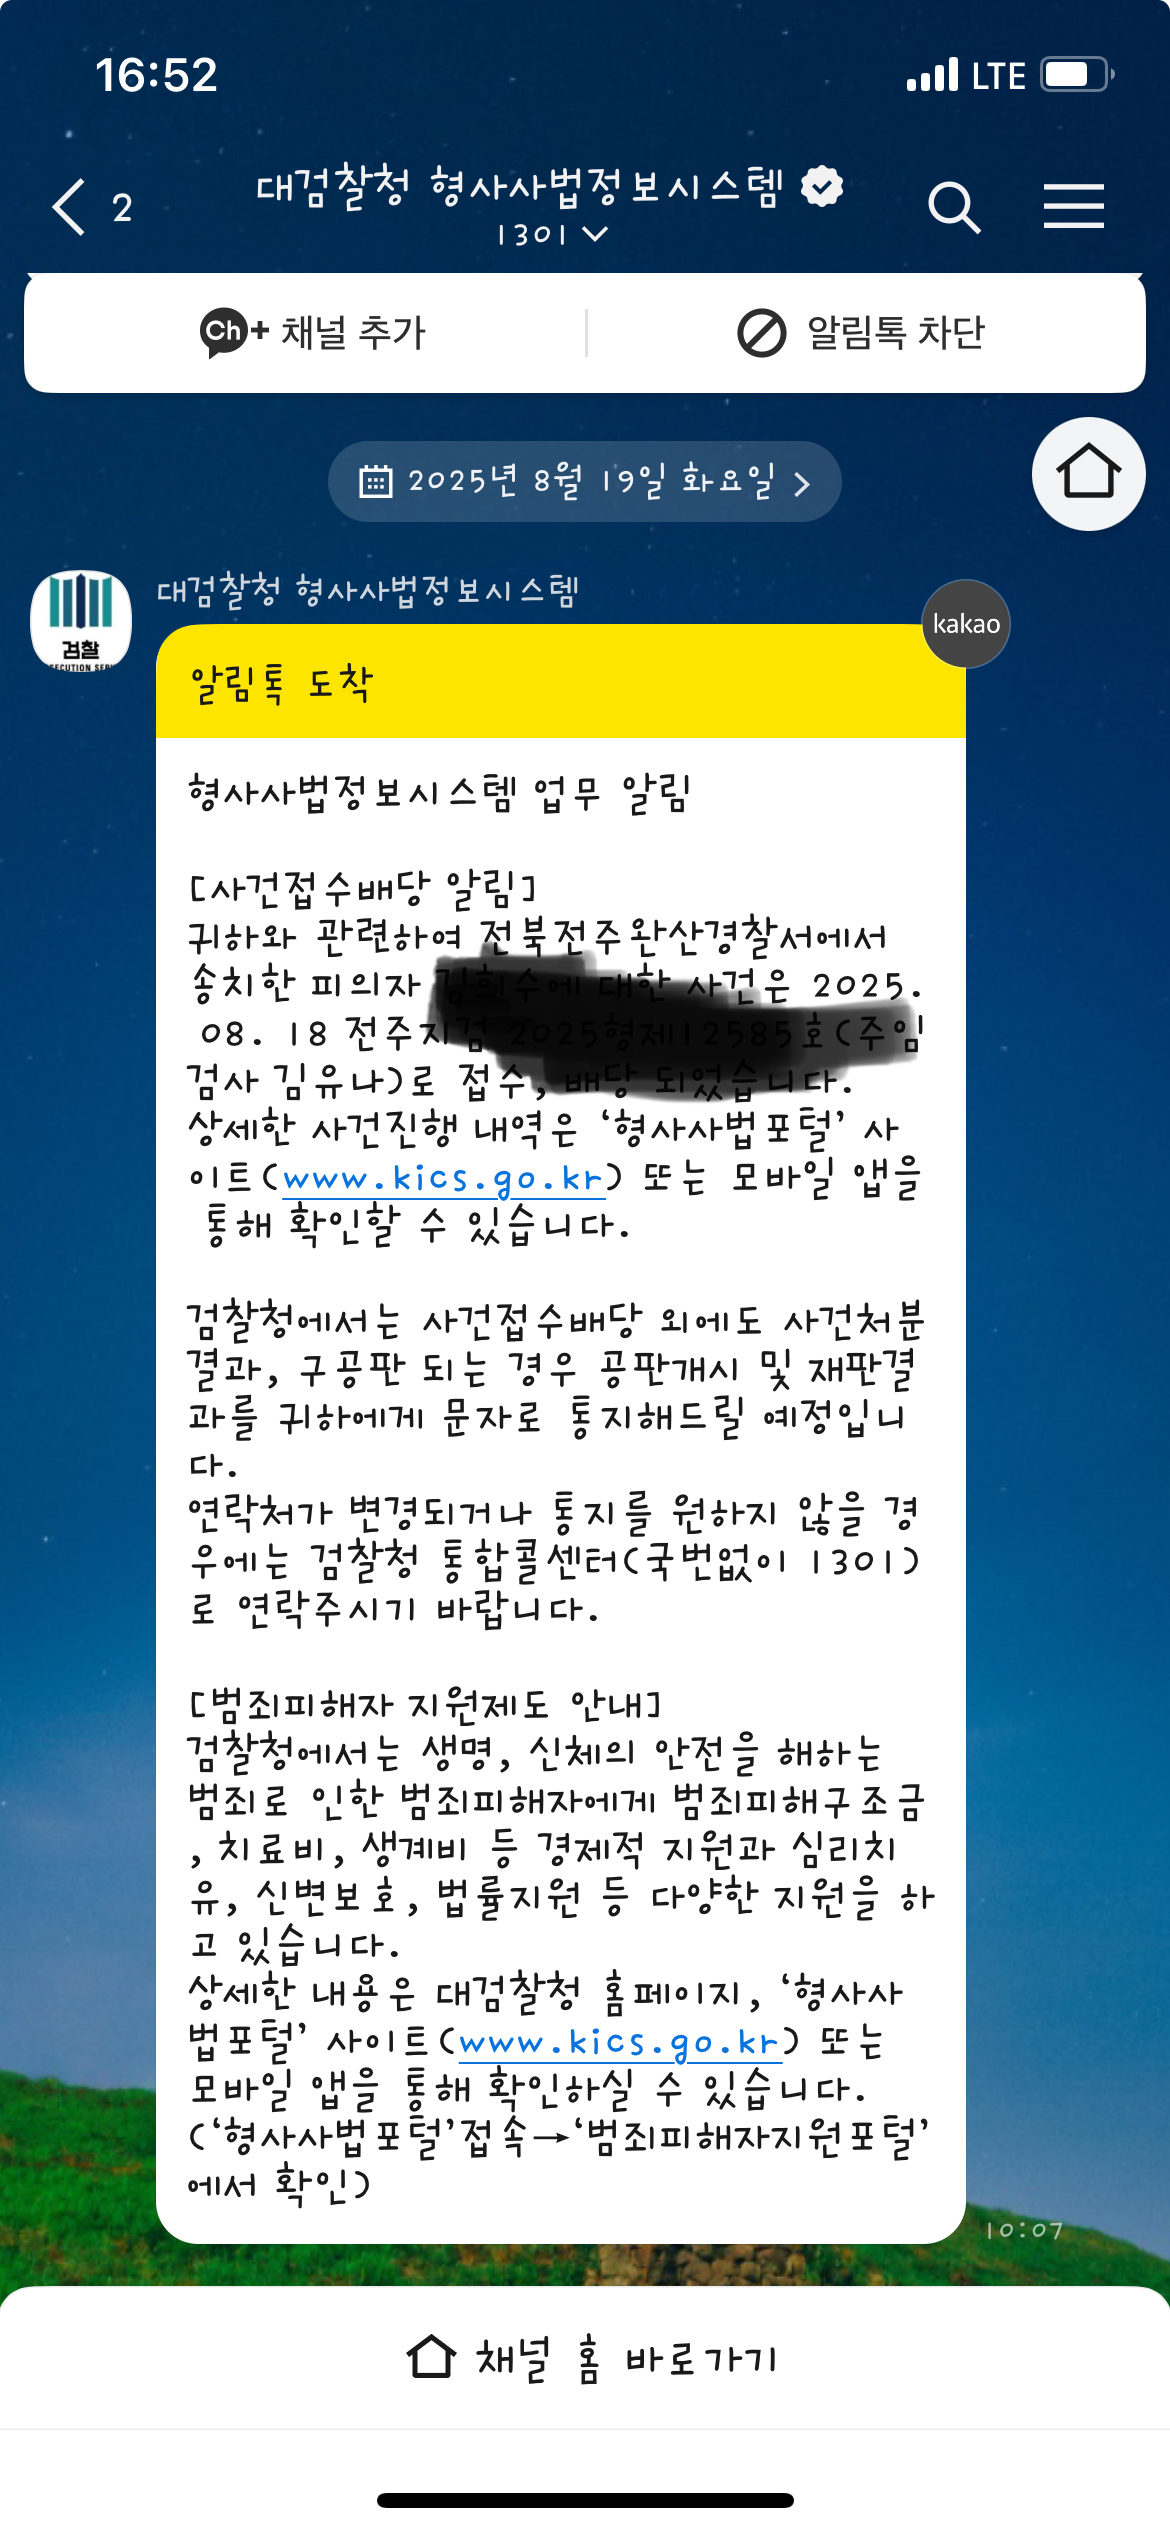 16:52
LTE
2
대검찰청 형사사법정보시스템
1301
Ch+ 채널 추가
알림톡 차단
2025년 8월 19일 화요일
검찰
대검찰청 형사사법정보시스템
kakao
알림톡 도착
형사사법정보시스템 업무 알림
[사건접수배당 알림]
귀하와 관련하여 전북전주완산경찰서에서
송치한 피의자 사건은 2025.
08. 18 전주지검 호(주임
검사 김유나)로 접수, 배당 되었습니다.
상세한 사건진행 내역은 ‘형사사법포털’ 사
이트(www.kics.go.kr) 또는 모바일 앱을
통해 확인할 수 있습니다.
검찰청에서는 사건접수배당 외에도 사건처분
결과, 구공판 되는 경우 공판개시 및 재판결
과를 귀하에게 문자로 통지해드릴 예정입니
다.
연락처가 변경되거나 통지를 원하지 않을 경
우에는 검찰청 통합콜센터(국번없이 1301)
로 연락주시기 바랍니다.
[범죄피해자 지원제도 안내]
검찰청에서는 생명, 신체의 안전을 해하는
범죄로 인한 범죄피해자에게 범죄피해구조금
, 치료비, 생계비 등 경제적 지원과 심리치
유, 신변보호, 법률지원 등 다양한 지원을 하
고 있습니다.
상세한 내용은 대검찰청 홈페이지, ‘형사사
법포털’ 사이트(www.kics.go.kr) 또는
모바일 앱을 통해 확인하실 수 있습니다.
(‘형사사법포털’접속→‘범죄피해자지원포털’
에서 확인)
10:07
채널 홈 바로가기